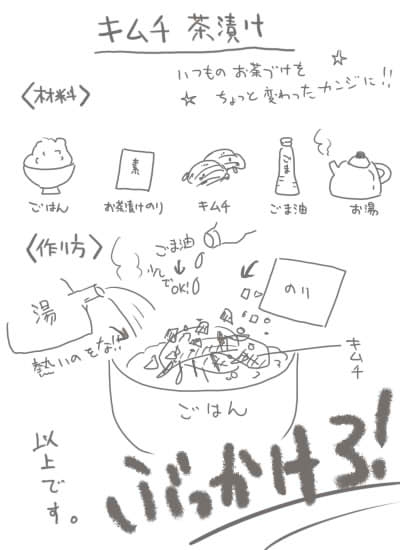 キムチ 茶漬け
いつもの お茶づけを
ちょっと変わったカンジに!!
〈材料〉
素
ごま
ごはん
お茶漬けのり
キムチ
ごま油
お湯
〈作り方〉
ごま油
少しでOK!
のり
湯
熱いのをな!!
キムチ
ごはん
ぶっかけろ!
以上です。